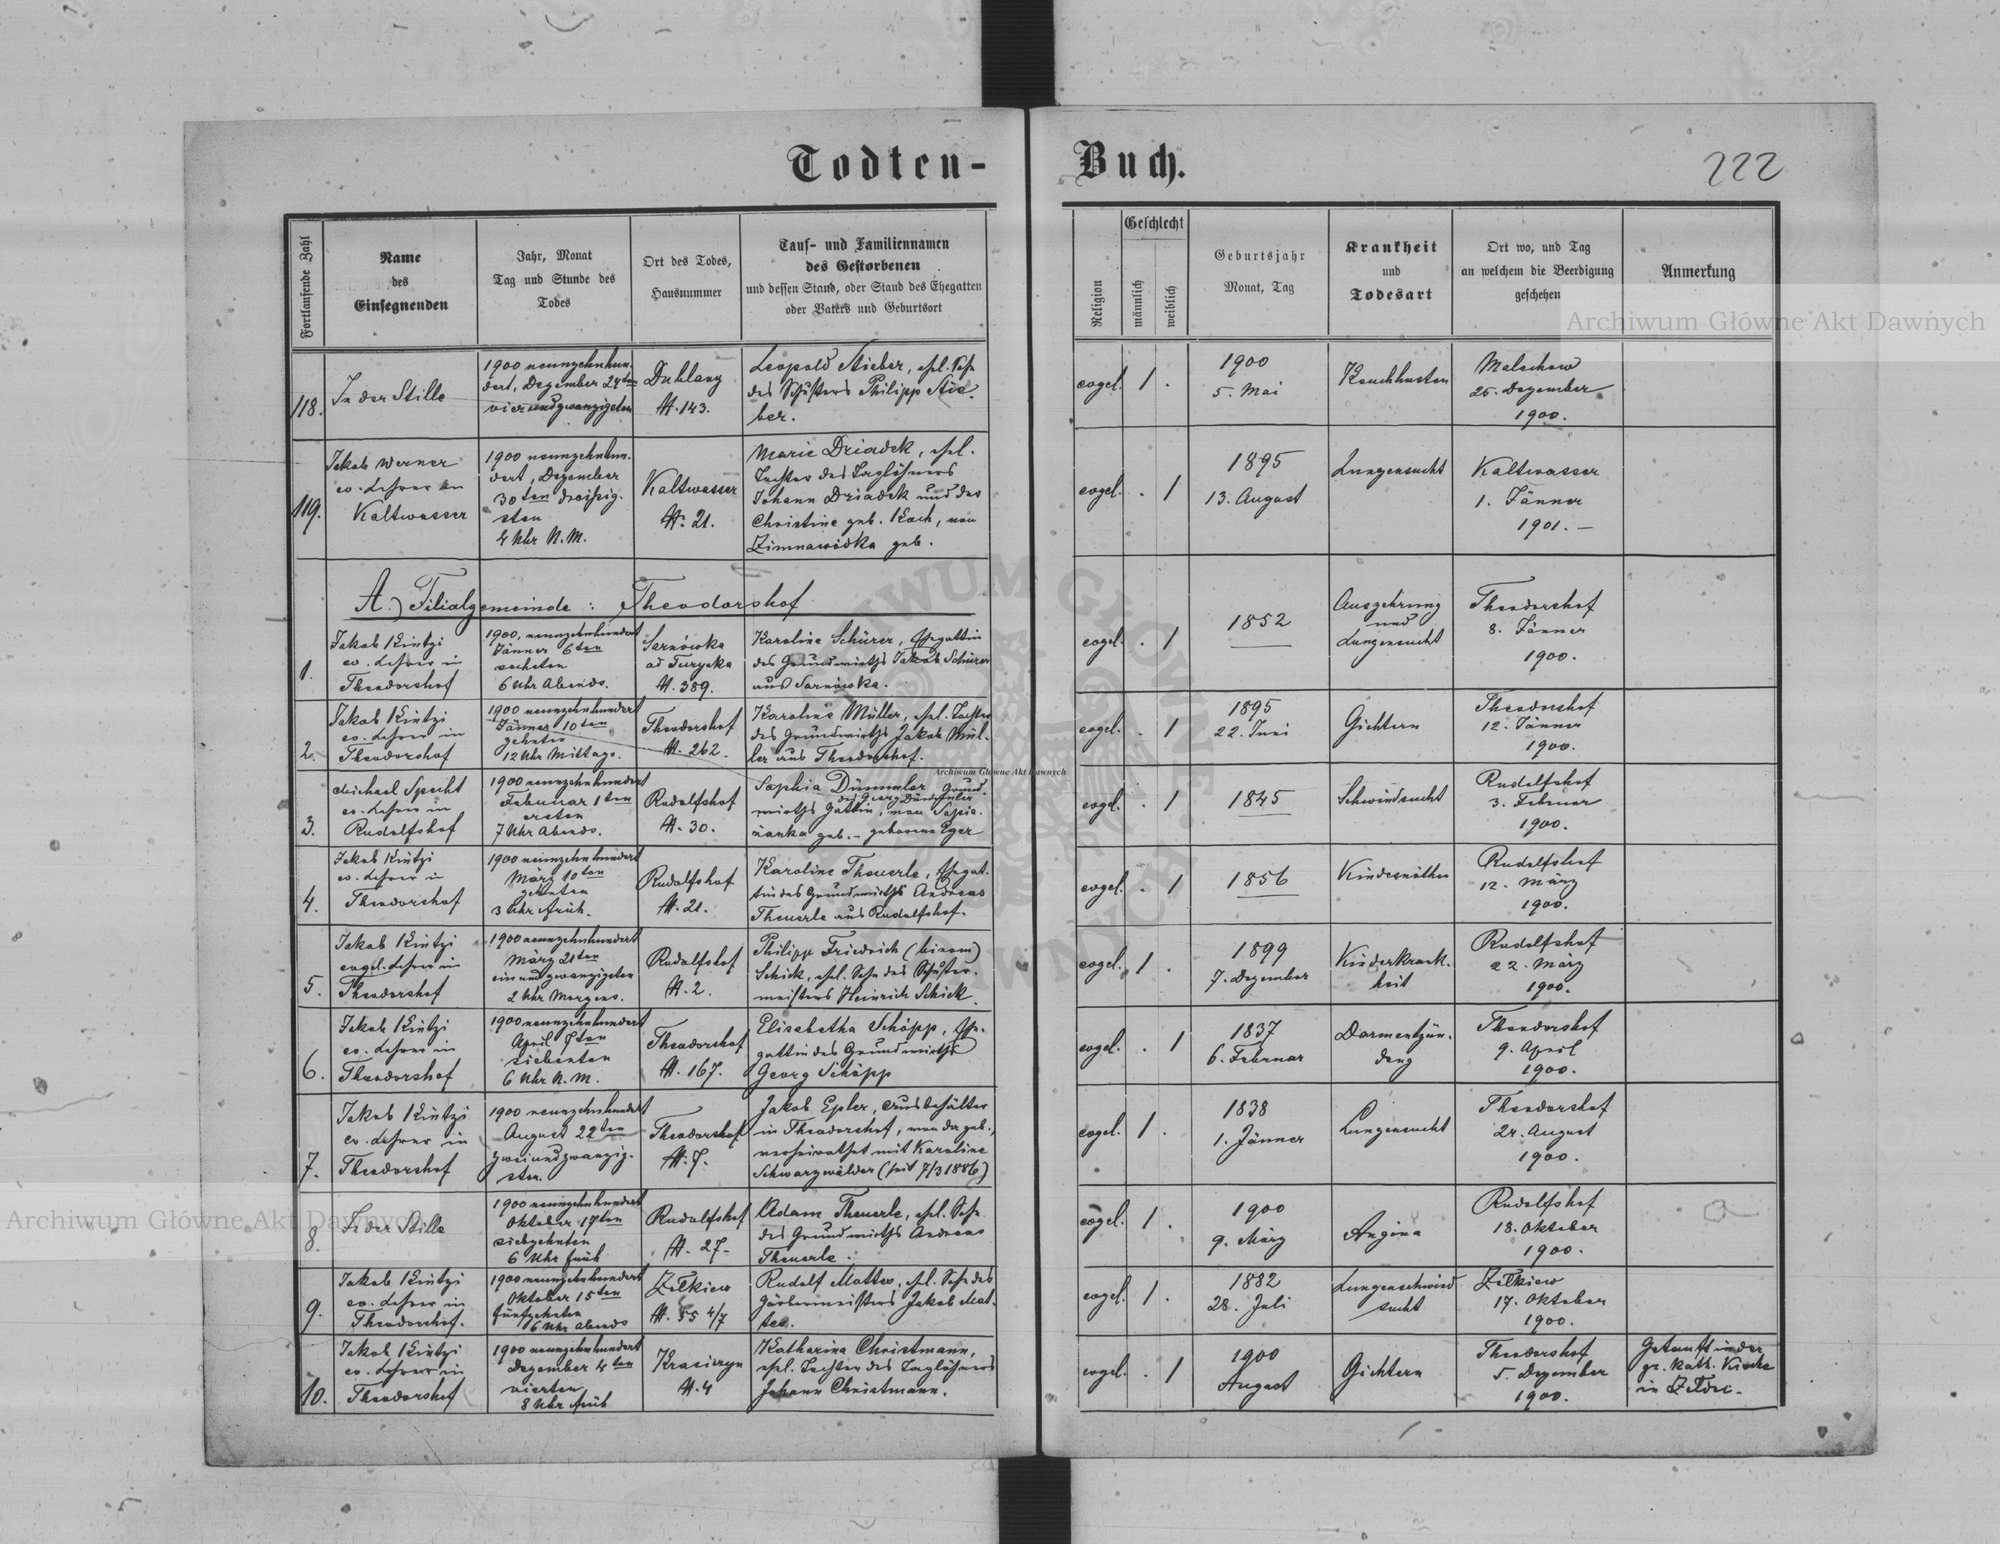 Todten-Buch.
222
Fortlaufende Zahl
Name
des
Einsegnenden
Jahr, Monat
Tag und Stunde des
Todes
Ort des Todes,
Hausnummer
Tauf- und Familiennamen
des Gestorbenen
und dessen Stand, oder Stand des Ehegatten
oder Vaters und Geburtsort
Religion
Geschlecht
männlich
weiblich
Geburtsjahr
Monat, Tag
Krankheit
und
Todesart
Ort wo, und Tag
an welchem die Beerdigung
geschehen
Anmerkung
118.
In der Stille
1900 neunzehnhun-
dert, Dezember 24ten
vierundzwanzigsten
Dublany
N. 143.
Leopold Stieber, ehel. Sohn
des Schusters Philipp Stie-
ber.
evgel. 1 .
1900
5. Mai
Keuchhusten
Malechow
25. Dezember
1900.
119.
Jakob Werner
ev. Lehrer in
Kaltwasser
1900 neunzehnhun-
dert, Dezember
30ten dreissig-
sten
4 Uhr N. M.
Kaltwasser
N. 21.
Marie Driadek, ehel.
Tochter des Taglöhners
Johann Driadek und der
Christine geb. Koch, von
Zimnawódka geb.
evgel. . 1
1895
13. August
Lungensucht
Kaltwasser
1. Jänner
1901. –
A.) Filialgemeinde : Theodorshof
1.
Jakob Kintzi
ev. Lehrer in
Theodorshof
1900, neunzehnhundert
Jänner 6ten
sechsten
6 Uhr Abends.
Sarnówka
ad Turynka
N. 389.
Karoline Schürer, Ehegattin
des Grundwirths Jakob Schürer
aus Sarnówka.
evgel. . 1
1852
Auszehrung
und
Lungensucht
Theodorshof
8. Jänner
1900.
2.
Jakob Kintzi
ev. Lehrer in
Theodorshof
1900 neunzehnhundert
Jänner 10ten
zehnten
12 Uhr Mittags.
Theodorshof
N. 262.
Karoline Müller, ehel. Tochter
des Grundwirths Jakob Mül-
ler aus Theodorshof.
evgel. . 1
1895
22. Juni
Gichtern
Theodorshof
12. Jänner
1900.
3.
Michael Specht
ev. Lehrer in
Rudolfshof
1900 neunzehnhundert
Februar 1ten
ersten
7 Uhr Abends.
Rudolfshof
N. 30.
Sophia Dümmler Grund-
des Georg Dümmler
wirths Gattin, von Sapie-
zanka geb. – geborene Eger
evgel. . 1
1845
Schwindsucht
Rudolfshof
3. Februar
1900.
4.
Jakob Kintzi
ev. Lehrer in
Theodorshof
1900 neunzehnhundert
März 10ten
zehnten
3 Uhr früh.
Rudolfshof
N. 21.
Karoline Theuerle, Ehegat-
tin des Grundwirths Andreas
Theuerle aus Rudolfshof.
evgel. . 1
1856
Kindesnöthen
Rudolfshof
12. März
1900.
5.
Jakob Kintzi
evgel. Lehrer in
Theodorshof
1900 neunzehnhundert
März 21ten
einundzwanzigsten
2 Uhr Morgens.
Rudolfshof
N. 2.
Philipp Friedrich (binom)
Schick, ehel. Sohn des Schuster-
meisters Heinrich Schick.
evgel. 1 .
1899
7. Dezember
Kinderkrank-
heit
Rudolfshof
22. März
1900.
6.
Jakob Kintzi
ev. Lehrer in
Theodorshof
1900 neunzehnhundert
April 7ten
siebenten
6 Uhr N. M.
Theodorshof
N. 167.
Elisabetha Schöpp, Ehe-
gattin des Grundwirths
Georg Schöpp
evgel. . 1
1837
6. Februar
Darmentzün-
dung
Theodorshof
9. April
1900.
7.
Jakob Kintzi
ev. Lehrer in
Theodorshof
1900 neunzehnhundert
August 22ten
zweiundzwanzig-
sten.
Theodorshof
N. 7.
Jakob Epler, Ausbehälter
in Theodorshof, von da geb.,
verheirathet mit Karoline
Schwarzwälder (seit 7/3 1886)
evgel. 1 .
1838
1. Jänner
Lungensucht
Theodorshof
24. August
1900.
8.
In der Stille
1900 neunzehnhundert
Oktober 17ten
siebzehnten
6 Uhr früh
Rudolfshof
N. 27.
Adam Theuerle, ehel. Sohn
des Grundwirths Andreas
Theuerle.
evgel. 1 .
1900
9. März
Angina
Rudolfshof
18. Oktober
1900.
9.
Jakob Kintzi
ev. Lehrer in
Theodorshof.
1900 neunzehnhundert
Oktober 15ten
fünfzehnten
6 Uhr Abends
Żółkiew
N. 55 4/7
Rudolf Mattes, ehel. Sohn des
Gärbermeisters Jakob Mat-
tes.
evgel. 1 .
1882
28. Juli
Lungenschwind
sucht
Żółkiew
17. Oktober
1900.
10.
Jakob Kintzi
ev. Lehrer in
Theodorshof
1900 neunzehnhundert
Dezember 4ten
vierten
8 Uhr früh
N. 4
Katharina Christmann,
ehel. Tochter des Taglöhners
Johann Christmann.
evgel. . 1
1900
August
Gichtern
Theodorshof
5. Dezember
1900.
Getauft in der
gr. kath. Kirche
in
Archiwum Główne Akt Dawnych
Archiwum Główne Akt Dawnych
Archiwum Główne Akt Dawnych